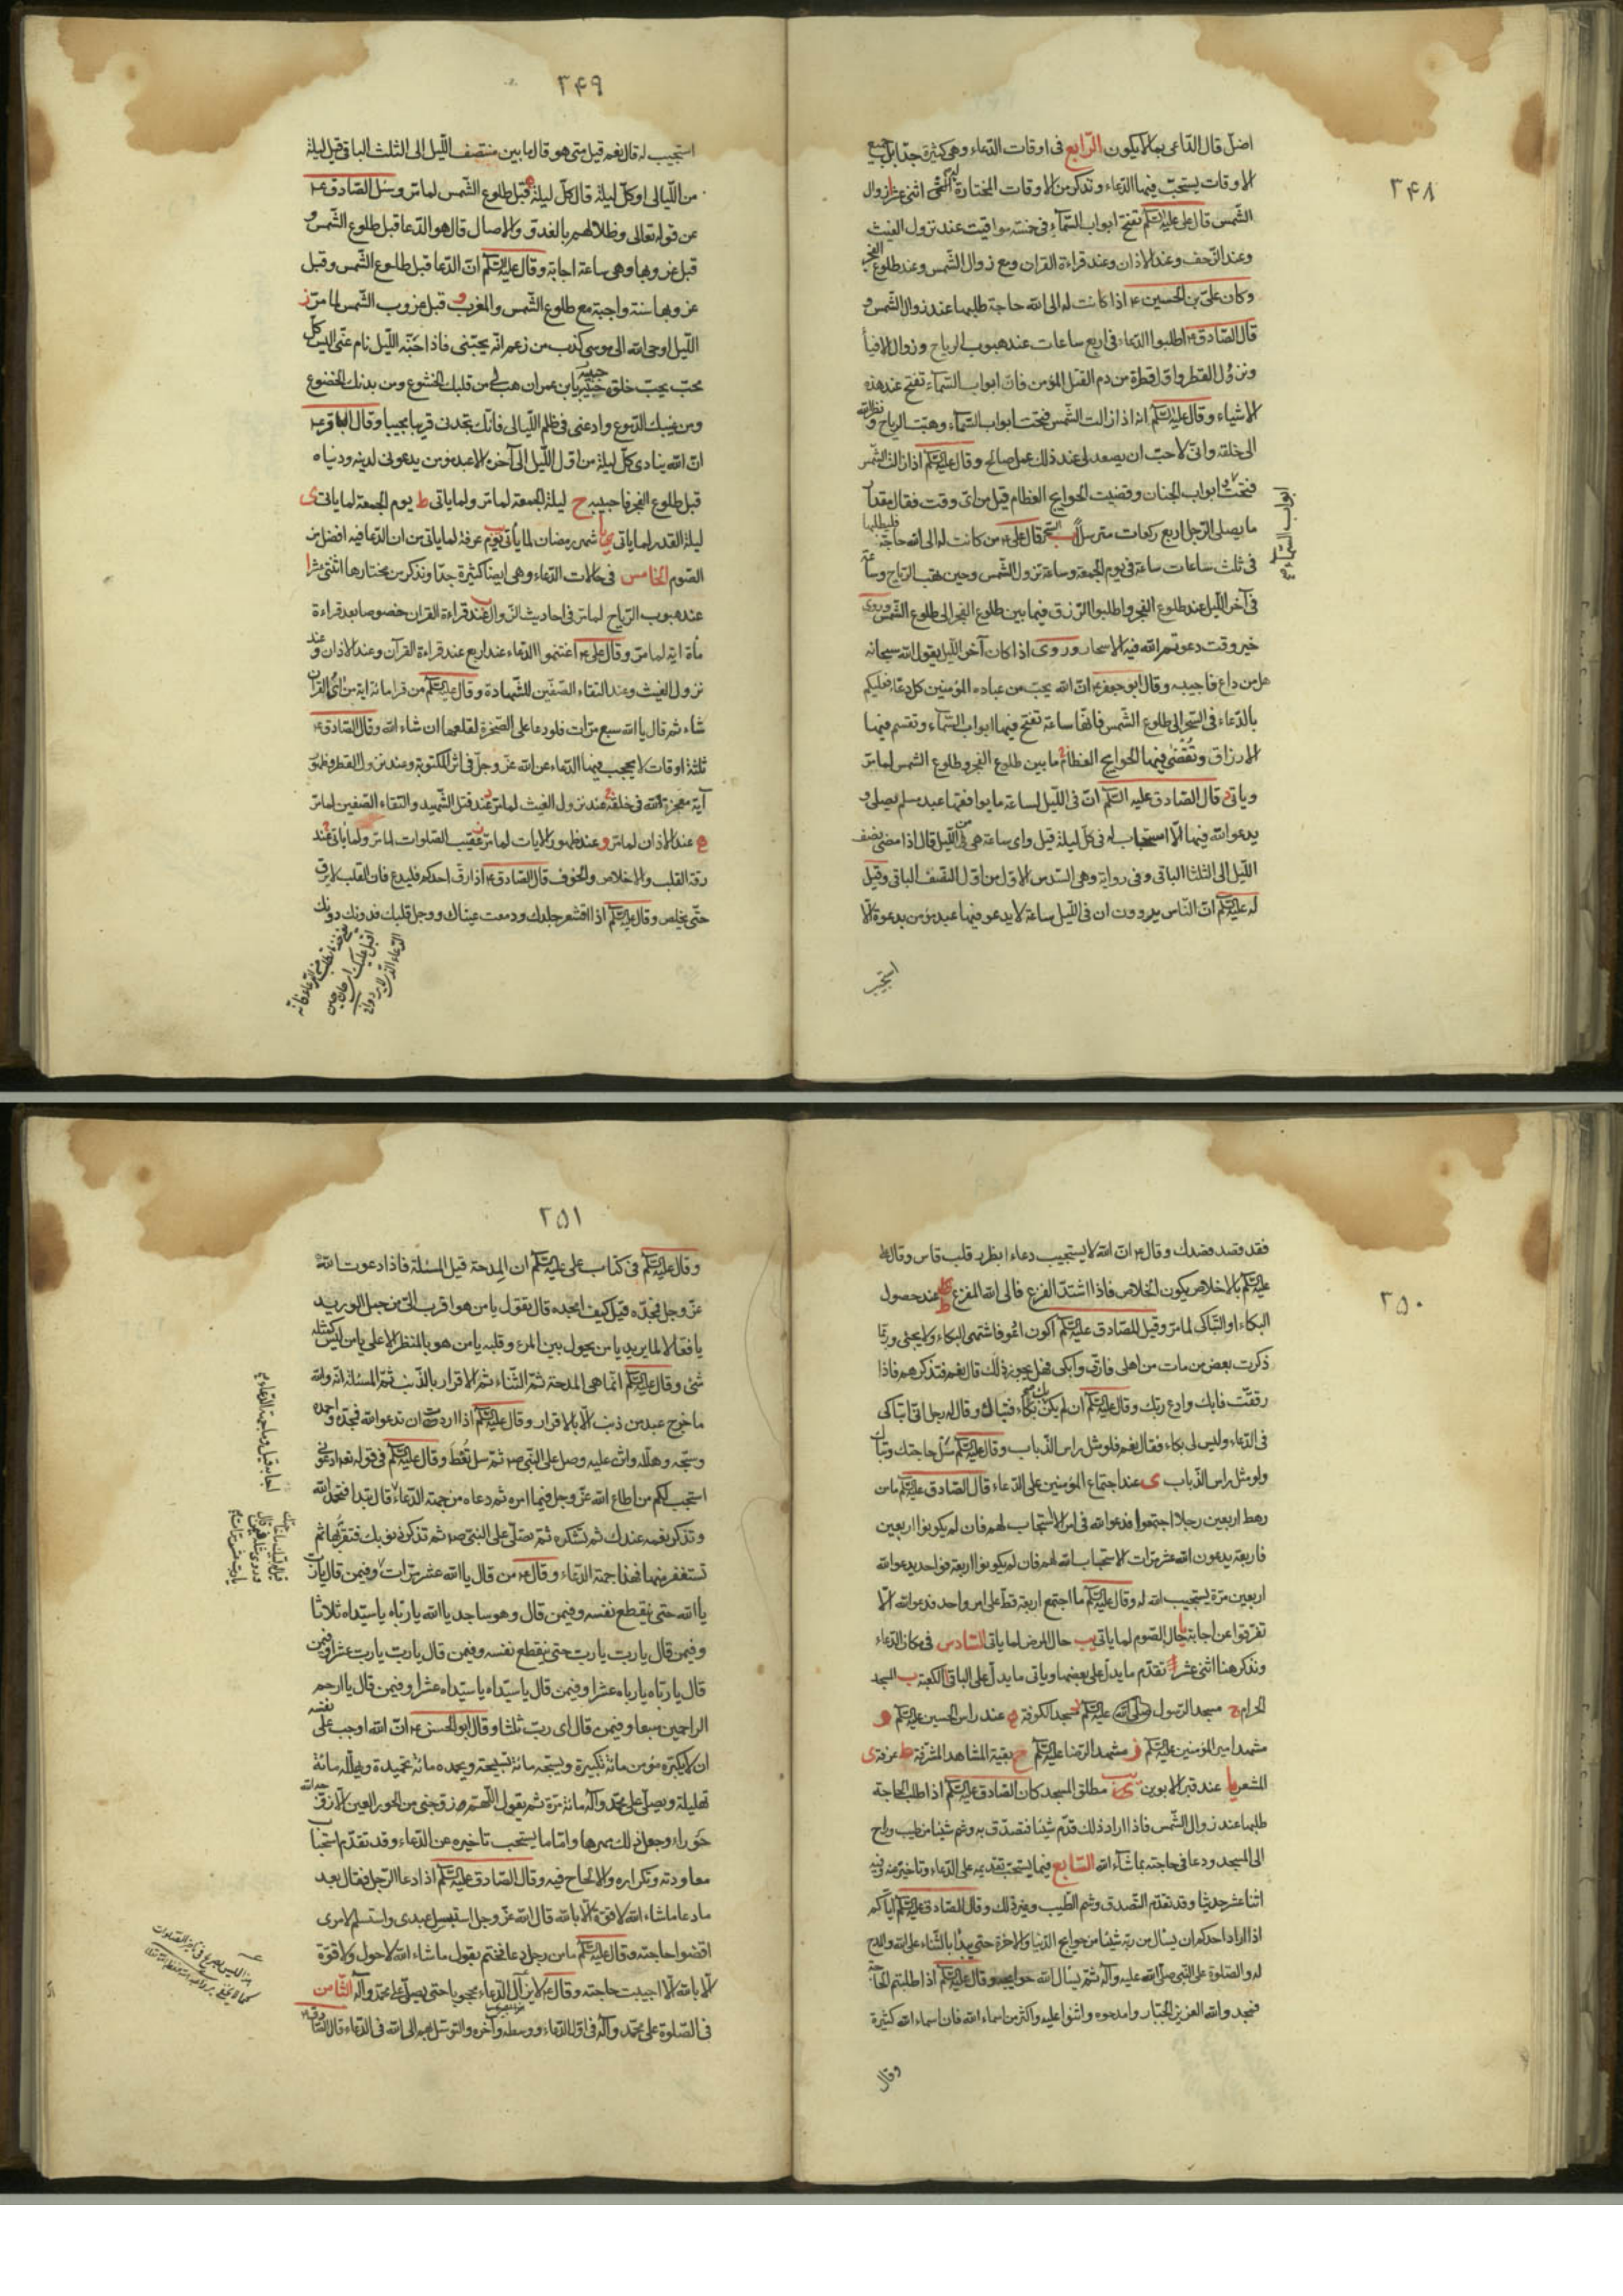 ٢۴٨
اضل قال الداعي بما لا يكون الرابع في اوقات الدعاء وهي كثيرة جدا بل جميع
الاوقات يستحب فيها الدعاء ونذكر من الاوقات المختارة اثني عشر ا زوال
الشمس قال علي عليه السلم تفتح ابواب السماء في خمسة مواقيت عند نزول الغيث
وعند الزحف وعند الاذان وعند قراءة القران ومع زوال الشمس وعند طلوع الفجر
وكان علي بن الحسين ع اذا كانت له الى الله حاجة طلبها عند زوال الشمس و
قال الصادق ع اطلبوا الدعاء في اربع ساعات عند هبوب الرياح وزوال الافيأ
ونزول القطر واول قطرة من دم القتيل المؤمن فان ابواب السماء تفتح عند هذه
الاشياء وقال عليه السلم انه اذا زالت الشمس فتحت ابواب السماء وهبت الرياح ونظر الله
الى خلقه واني لاحب ان يصعد لي عند ذلك عمل صالح وقال عليه السلم اذا زالت الشمس
فتحت ابواب الجنان وقضيت الحوايج العظام قيل من اي وقت فقال مقدار
ابواب السماء و
ما يصلي الرجل اربع ركعات مترسلا ب السحر قال علي ع من كانت له الى الله حاجة فليطلبها
في ثلث ساعات ساعة في يوم الجمعة وساعة تزول الشمس وحين تهب الرياح وساعة
في آخر الليل عند طلوع الفجر واطلبوا الرزق فيما بين طلوع الفجر الى طلوع الشمس وروي
خير وقت دعوتم الله فيه الاسحار وروي اذا كان آخر الليل يقول الله سبحانه
هل من داع فاجيبه وقال ابو جعفر ع ان الله يحب من عباده المؤمنين كل دعاء فعليكم
بالدعاء في السحر الى طلوع الشمس فانها ساعة تفتح فيها ابواب السماء وتقسم فيها
الارزاق وتقضى فيها الحوايج العظام ج ما بين طلوع الفجر وطلوع الشمس لما مر
وياتي د قال الصادق عليه السلم ان في الليل لساعة ما يوافقها عبد مسلم يصلي و
يدعو الله فيها الا استجاب له في كل ليلة قيل واي ساعة هي من الليل قال اذا مضى نصف
الليل الى الثلث الباقي وفي رواية وهي السدس الاول من اول النصف الباقي وقيل
له عليه السلم ان الناس يروون ان في الليل ساعة لا يدعو فيها عبد مؤمن بدعوة الا
استجيب
٢۴٩
استجيب له قال نعم قيل متى هو قال ما بين منتصف الليل الى الثلث الباقي قيل ليلة
من الليالي او كل ليلة قال كل ليلة ه قبل طلوع الشمس لما مر وسئل الصادق ع
عن قوله تعالى وظلالهم بالغدو والاصال قال هو الدعا قبل طلوع الشمس و
قبل غروبها وهي ساعة اجابة وقال عليه السلم ان الدعا قبل طلوع الشمس وقبل
غروبها سنة واجبة مع طلوع الشمس والمغرب و قبل غروب الشمس لما مر ز
الليل اوحى الله الى موسى كذب من زعم انه يحبني فاذا جنه الليل نام عني اليس كل
محب يحب خلوة حبيبه يا بن عمران هب لي من قلبك الخشوع ومن بدنك الخضوع
ومن عينيك الدموع وادعني في ظلم الليالي فانك تجدني قريبا مجيبا وقال الباقر ع
ان الله ينادي كل ليلة من اول الليل الى آخره الا عبد مؤمن يدعوني لدينه ودنياه
قبل طلوع الفجر فاجيبه ح ليلة الجمعة لما مر ولما ياتي ط يوم الجمعة لما ياتي ى
ليلة القدر لما ياتي يا شهر رمضان لما يأتي يب يوم عرفة لما ياتي من ان الدعا فيه افضل من
الصوم الخامس في حالات الدعاء وهي ايضا كثيرة جدا ونذكر من مختارها اثني عشر ا
عند هبوب الرياح لما مر في احاديث الزوال ب عند قراءة القران خصوصا بعد قراءة
مأة اية لما مر وقال علي ع اغتنموا الدعاء عند اربع عند قراءة القرآن وعند الاذان وعند
نزول الغيث وعند التقاء الصفين للشهادة وقال عليه السلم من قرأ مائة اية من اي القران
شاء ثم قال يا الله سبع مرات فلو دعا على الصخرة لقلعها ان شاء الله وقال الصادق ع
ثلثة اوقات لا يحجب فيها الدعاء عن الله عز وجل في اثر المكتوبة وعند نزول القطر وظهور
آية معجزة لله في خلقه ج عند نزول الغيث لما مر د عند قتل الشهيد والتقاء الصفين لما مر
ه عند الاذان لما مر و عند ظهور الايات لما مر ز عقيب الصلوات لما مر ولما ياتي ح عند
رقة القلب والاخلاص والخوف قال الصادق ع اذا رق احدكم فليدع فان القلب لا يرق
حتى يخلص وقال عليه السلم اذا اقشعر جلدك ودمعت عيناك ووجل قلبك فدونك دونك
٢۵٠
فقد قصد قصدك وقال ع ان الله لا يستجيب دعاء بظهر قلب قاس وقال
عليه السلم بالاخلاص يكون الخلاص فاذا اشتد الفزع فالى الله المفزع ط عند حصول
البكاء او التباكي لما مر وقيل للصادق عليه السلم اكون ادعو فاشتهي البكاء ولا يجئني وربما
ذكرت بعض من مات من اهلي فارق وابكي فهل يجوز ذلك قال نعم فتذكرهم فاذا
رققت فابك وادع ربك وقال عليه السلم ان لم يكن بك بكاء فتباك وقال له رجل اني اتباكى
في الدعاء وليس لي بكاء فقال نعم فلو مثل راس الذباب وقال عليه السلم سل حاجتك وتباك
ولو مثل راس الذباب ى عند اجتماع المؤمنين على الدعاء قال الصادق عليه السلم ما من
رهط اربعين رجلا اجتمعوا فدعوا الله في امر الا استجاب لهم فان لم يكونوا اربعين
فاربعة يدعون الله عشر مرات الا استجاب الله لهم فان لم يكونوا اربعة فواحد يدعو الله
اربعين مرة يستجيب الله له وقال عليه السلم ما اجتمع اربعة قط على امر واحد فدعوا الله الا
تفرقوا عن اجابة يا حال الصوم لما ياتي يب حال المرض لما ياتي السادس في مكان الدعاء
ونذكر هنا اثني عشر تقدم ما يدل على بعضها وياتي ما يدل على الباقي ا الكعبة ب المسجد
الحرام ج مسجد الرسول صلى الله عليه السلم د مسجد الكوفة ه عند راس الحسين عليه السلم و
مشهد امير المؤمنين عليه السلم ز مشهد الرضا عليه السلم ح بقية المشاهد المشرفة ط عرفة ى
المشعر يا عند قبر الابوين يب مطلق المسجد كان الصادق عليه السلم اذا طلب الحاجة
طلبها عند زوال الشمس فاذا اراد ذلك قدم شيئا فتصدق به وشم شيئا من طيب وراح
الى المسجد ودعا في حاجته بما شاء الله السابع فيما يستحب تقديمه على الدعاء وتاخيره عنه وفيه
اثنا عشر حديثا وقد تقدم التصدق وشم الطيب وغير ذلك وقال الصادق عليه السلم اياكم
اذا اراد احدكم ان يسئل من ربه شيئا من حوايج الدنيا والاخرة حتى يبدأ بالثناء على الله والمدح
له والصلوة على النبي صلى الله عليه وآله ثم يسال الله حوايجه وقال عليه السلم اذا طلبتم الحاجة
فمجدوا الله العزيز الجبار وامدحوه واثنوا عليه واكثر من اسماء الله فان اسماء الله كثيرة
وقال
٢۵١
وقال عليه السلم في كتاب علي عليه السلم ان المدحة قبل المسئلة فاذا دعوت الله
عز وجل فمجده قيل كيف امجده قال تقول يا من هو اقرب الي من حبل الوريد
يا فعالا لما يريد يا من يحول بين المرء وقلبه يا من هو بالمنظر الاعلى يا من ليس كمثله
شئ وقال عليه السلم انما هي المدحة ثم الثناء ثم الاقرار بالذنب ثم المسئلة انه والله
ما خرج عبد من ذنب الا بالاقرار وقال عليه السلم اذا اردت ان تدعو الله فمجده واحمده
وسبحه وهلله واثن عليه وصل على النبي ص ثم سل تعط وقال عليه السلم في قوله تعالى ادعوني
استجب لكم من اطاع الله عز وجل فيما امره ثم دعاه من جهة الدعاء قال تبدا فتحمد الله
وتذكر نعمه عندك ثم تشكره ثم تصلي على النبي ص ثم تذكر ذنوبك فتقر بها ثم
تستغفر منها فهذا جهة الدعاء وقال ع من قال يا الله عشر مرات وفيمن قال يا رب
يا الله حتى ينقطع نفسه وفيمن قال وهو ساجد يا الله يا رباه يا سيداه ثلاثا
وفيمن قال يا رب يا رب حتى ينقطع نفسه وفيمن قال يا رب يا رب عشرا وفيمن
قال يا رباه يا رباه عشرا وفيمن قال يا سيداه يا سيداه عشرا وفيمن قال يا ارحم
الراحمين سبعا وفيمن قال اي رب ثلثا وقال ابو الحسن ع ان الله اوجب على نفسه
ان لا يكبره مؤمن مائة تكبيرة ويسبحه مائة تسبيحة ويحمده مائة تحميدة ويهلله مائة
تهليلة ويصلي على محمد وآله مائة مرة ثم يقول اللهم زوجني من الحور العين الا زوجه الله
حوراء وجعل ذلك مهرها واما ما يستحب تاخيره عن الدعاء وقد تقدم استحباب
معاودته وتكراره والالحاح فيه وقال الصادق عليه السلم اذا دعا الرجل فقال بعد
ما دعا ما شاء الله لا قوة الا بالله قال الله عز وجل استبسل عبدي واستسلم لامري
اقضوا حاجته وقال عليه السلم ما من رجل دعا فختم بقول ما شاء الله لا حول ولا قوة
الا بالله الا اجيبت حاجته وقال ع لا يزال الدعاء محجوبا حتى يصلي على محمد وآله الثامن
في الصلوة على محمد وآله في اول الدعاء ووسطه وآخره والتوسل بهم الى الله في الدعاء قال الصادق ع